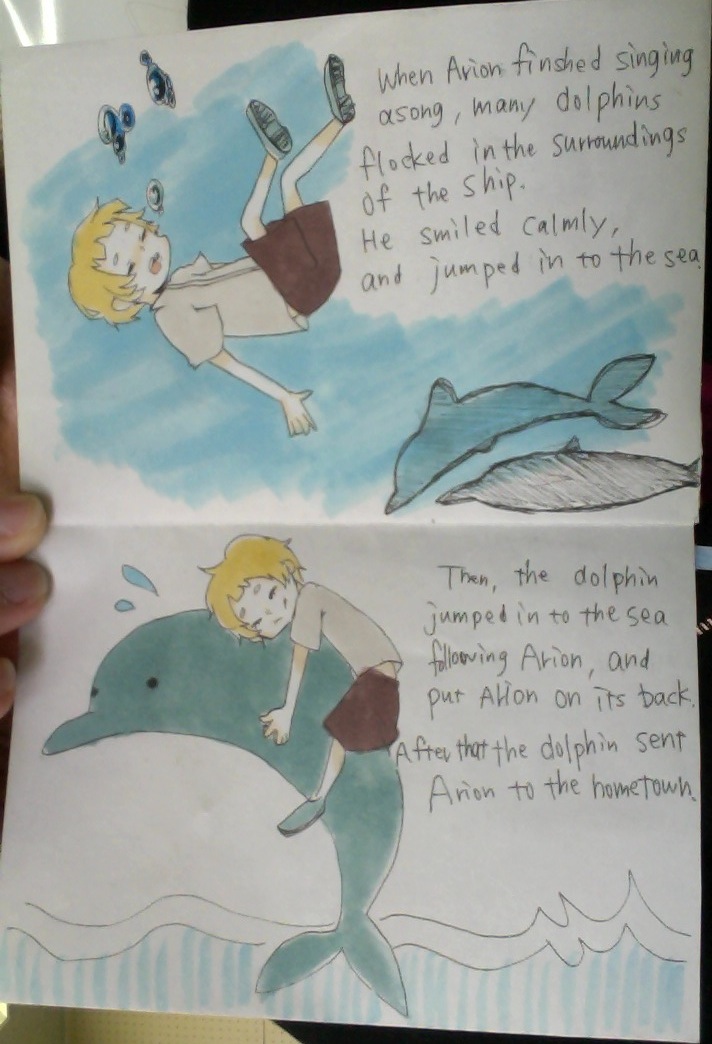 When Arion finshed singing
asong, many dolphins
flocked in the surroundings
of the ship.
He smiled calmly,
and jumped in to the sea.
Then, the dolphin
jumped in to the sea
following Arion, and
put Arion on its back.
After that the dolphin sent
Arion to the hometown.